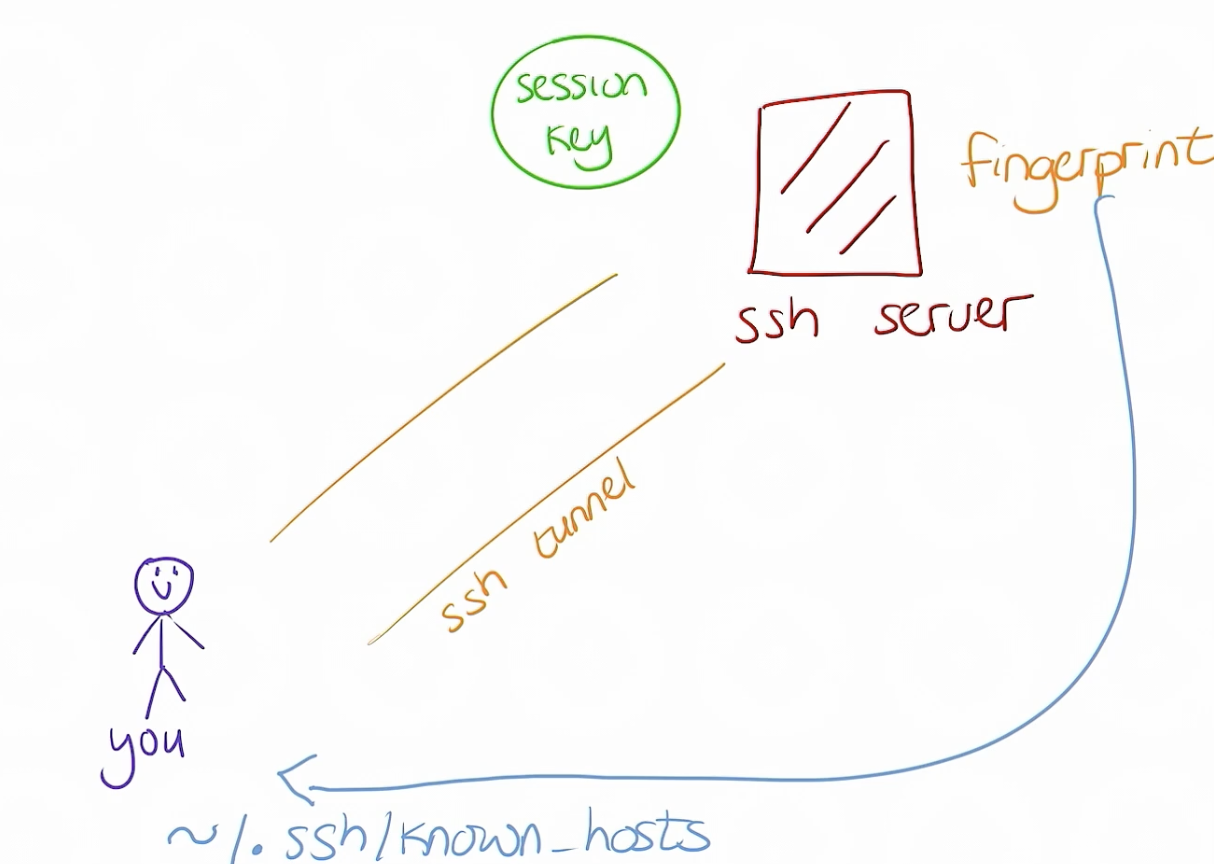 session
key
fingerprint
ssh server
ssh tunnel
you
~/.ssh/known_hosts